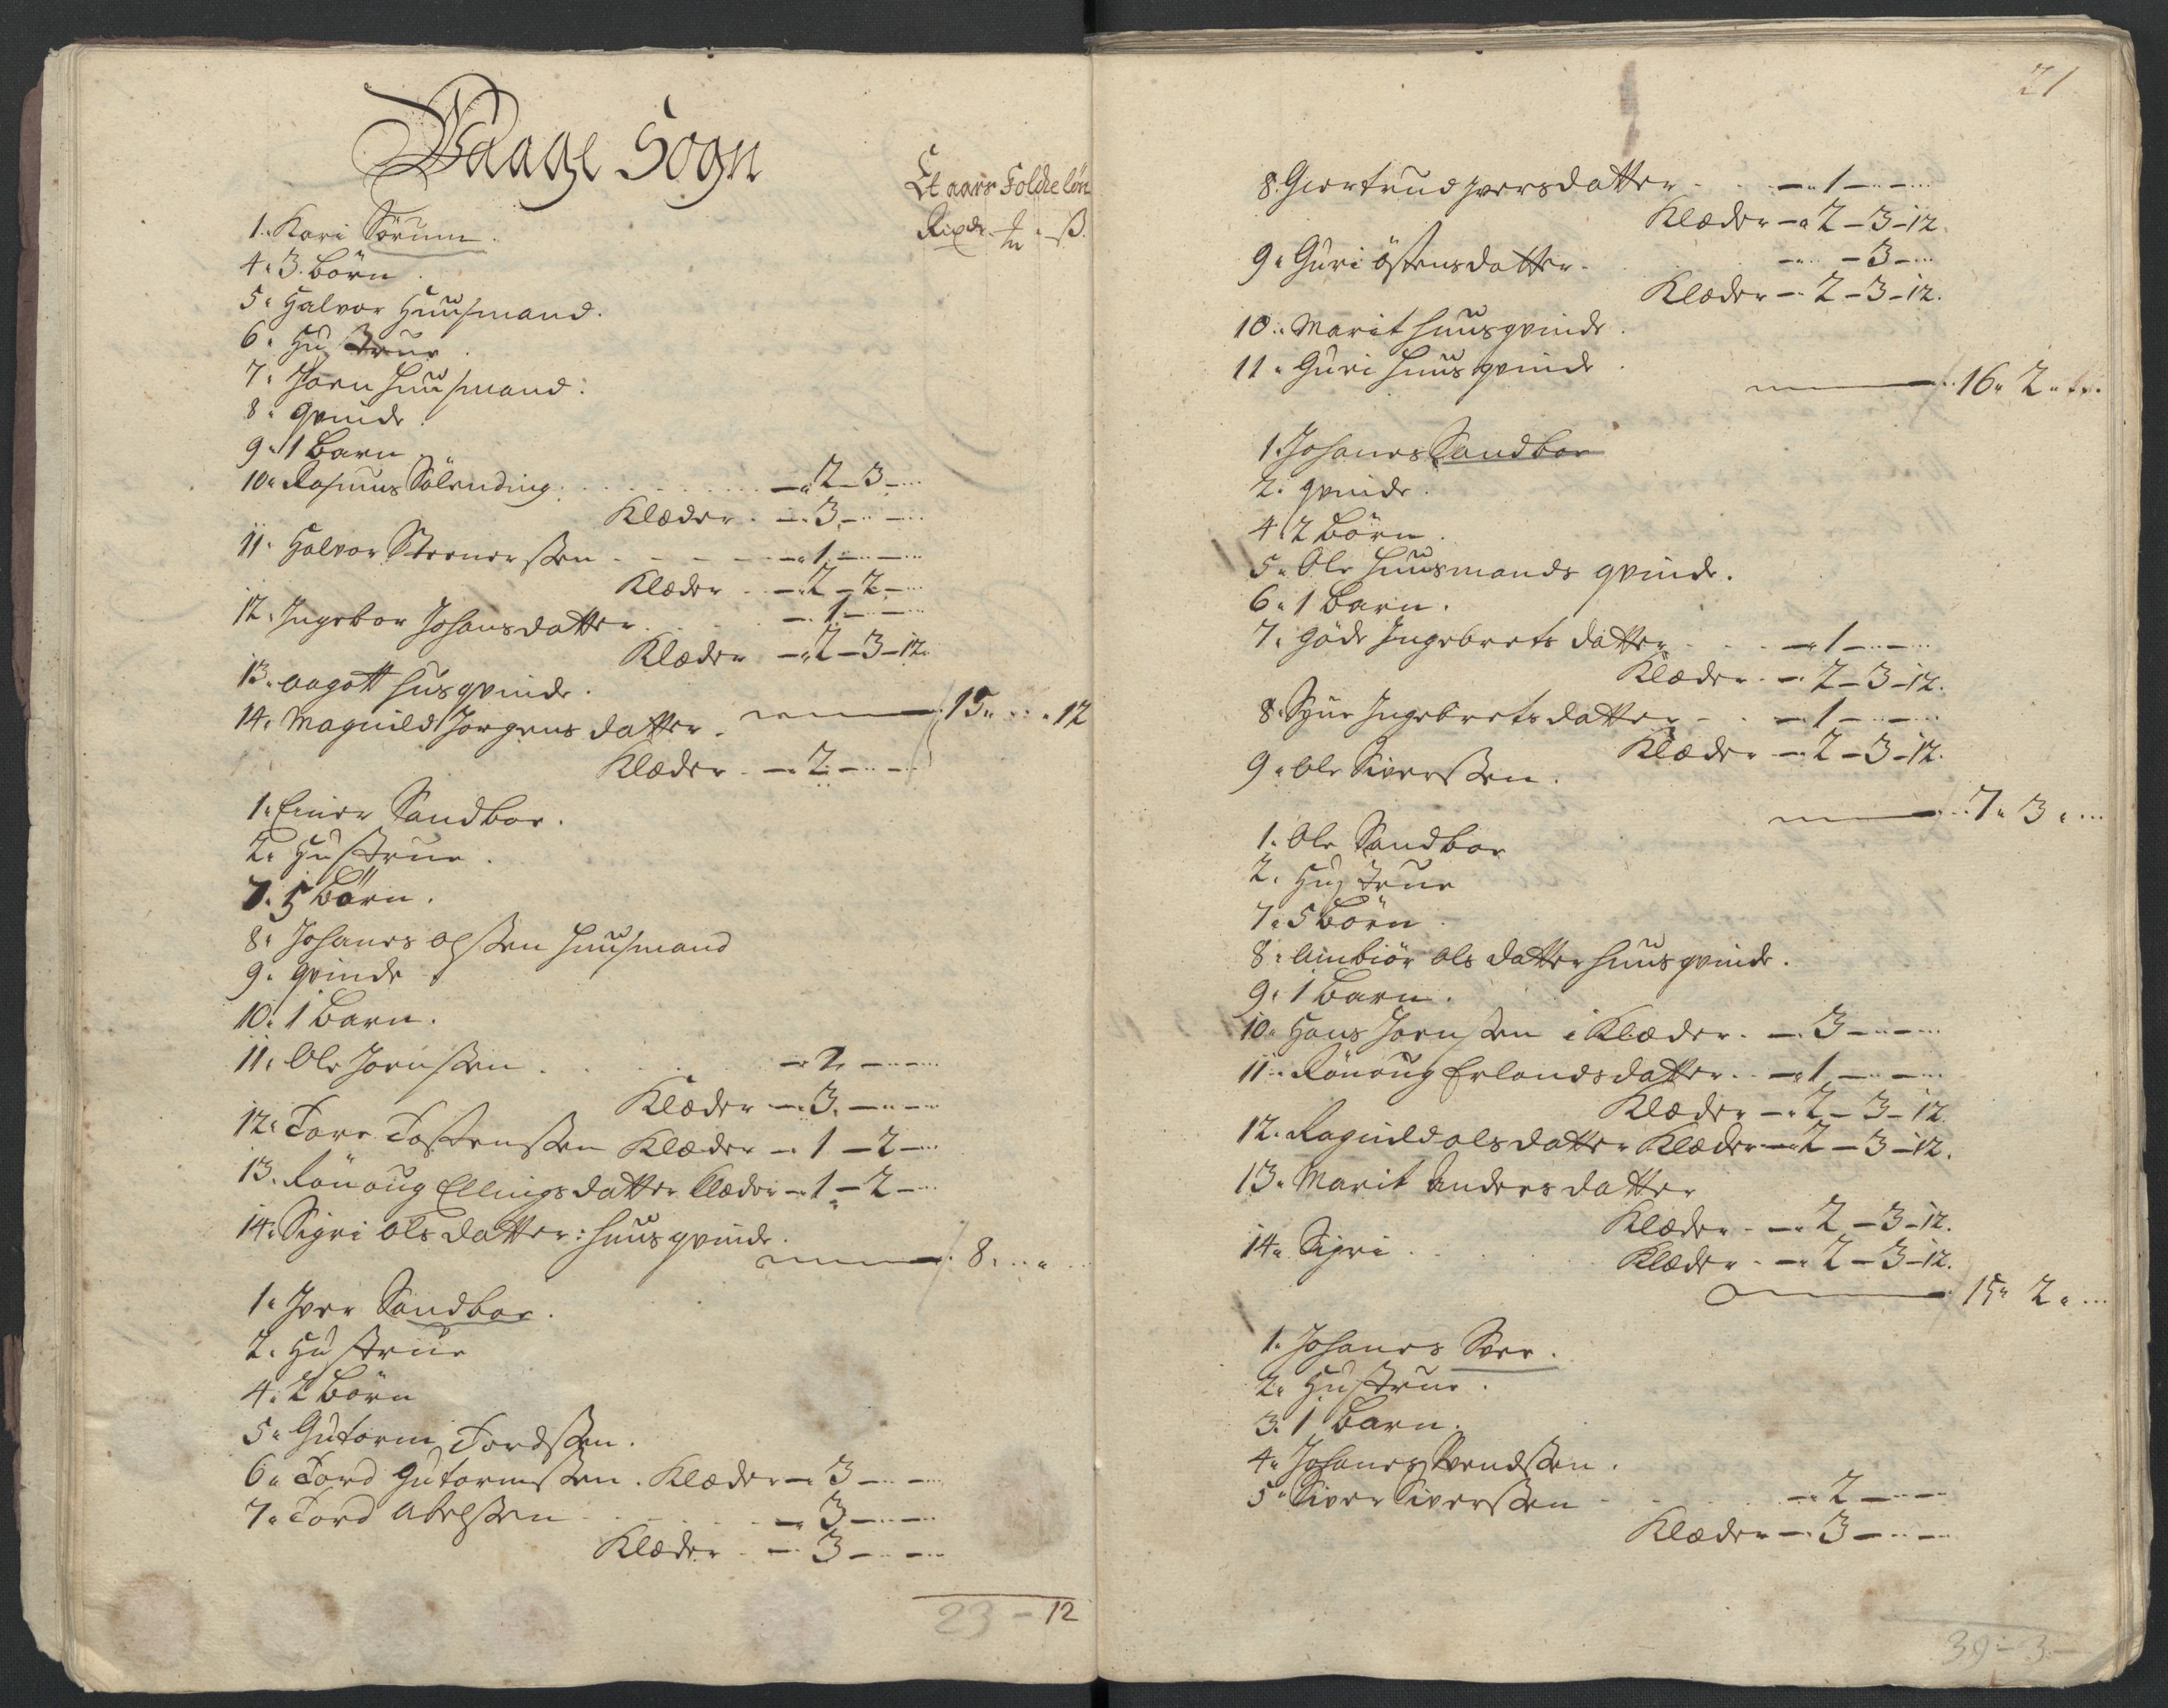 Waage Sogn
Et aars Folcke løn
Rixdr. # ß.
1. Kari Sørum.
4. 3. børn.
5. Halvor Huusmand.
6. Hustrue.
7. Joen huusmand.
8. qvinde.
9. 1 Barn
10. Rasmus Sølending. — 2 — 3 —
Klæder. — 3 — —
11. Halvor Steenersen — 1 — —
Klæder — 2 — 2 —
12. Ingebor Johansdatter. — 1 — —
Klæder — 2 — 3 — 12.
13. aagott husqvinde.
14. Magnild Jørgens datter. — 15 " .. " 12
Klæder — 2 — —
1. Einer Sandboe.
2. Hustrue.
7. 5 Børn.
8. Johanes olssen huusmand
9. qvinde
10. 1 Barn.
11. Ole Joenssen. — 2 — —
Klæder — 3. — —
12. Tore Tostenssen Klæder — 1 — 2 —
13. Rønoug Ellingsdatter Klæder — 1 — 2 —
14. Sigri ols datter: huusqvinde.
— 8. .. " ..
1. Iver Sandboe.
2. Hustrue
4. 2 Børn
5. Gutorm Tordssen.
6. Tord Gutormssen. Klæder — 3 — —
7. Tord Abelssen — 3 — —
Klæder — 3 — —
23 — 12
21
8. Giertrud Iversdatter — 1 — —
Klæder — 2 — 3 — 12.
9. Guri Østensdatter. — — 3 —
Klæder — 2 — 3 — 12.
10. Marit huusqvinde.
11. Guri huusqvinde.
— 16 " 2 " ..
1. Johanes Sandboe
2. qvinde.
4 2 Børn.
5. Ole huusmands qvinde.
6. 1 Barn.
7. Gøde Ingebrets datter — 1 — —
Klæder. — 2 — 3 — 12.
8. Syne Ingebrets datter — 1 — —
Klæder — 2 — 3 — 12.
9. Ole Siverssen.
— 7 " 3 " ..
1. Ole Sandboe
2. Hustrue
7. 5 Børn.
8. Embiør ols datter huusqvinde.
9. 1 Barn.
10. Hans Joenssen i Klæder. — 3 — —
11. Rønoug Erlandsdatter. — 1 — —
Klæder — 2 — 3 — 12
12. Ragnild olsdatter Klæder — 2 — 3 — 12.
13. Marit Anders datter
Klæder — 2 — 3 — 12.
14. Sigri.
Klæder — 2 — 3 — 12.
— 15 " 2 " ..
1. Johanes Svee.
2. Hustrue.
3. 1 Barn.
4. Johanes Svendssen.
5. Siver Siverssen — 2 — —
Klæder — 3 — —
39 — 3 —